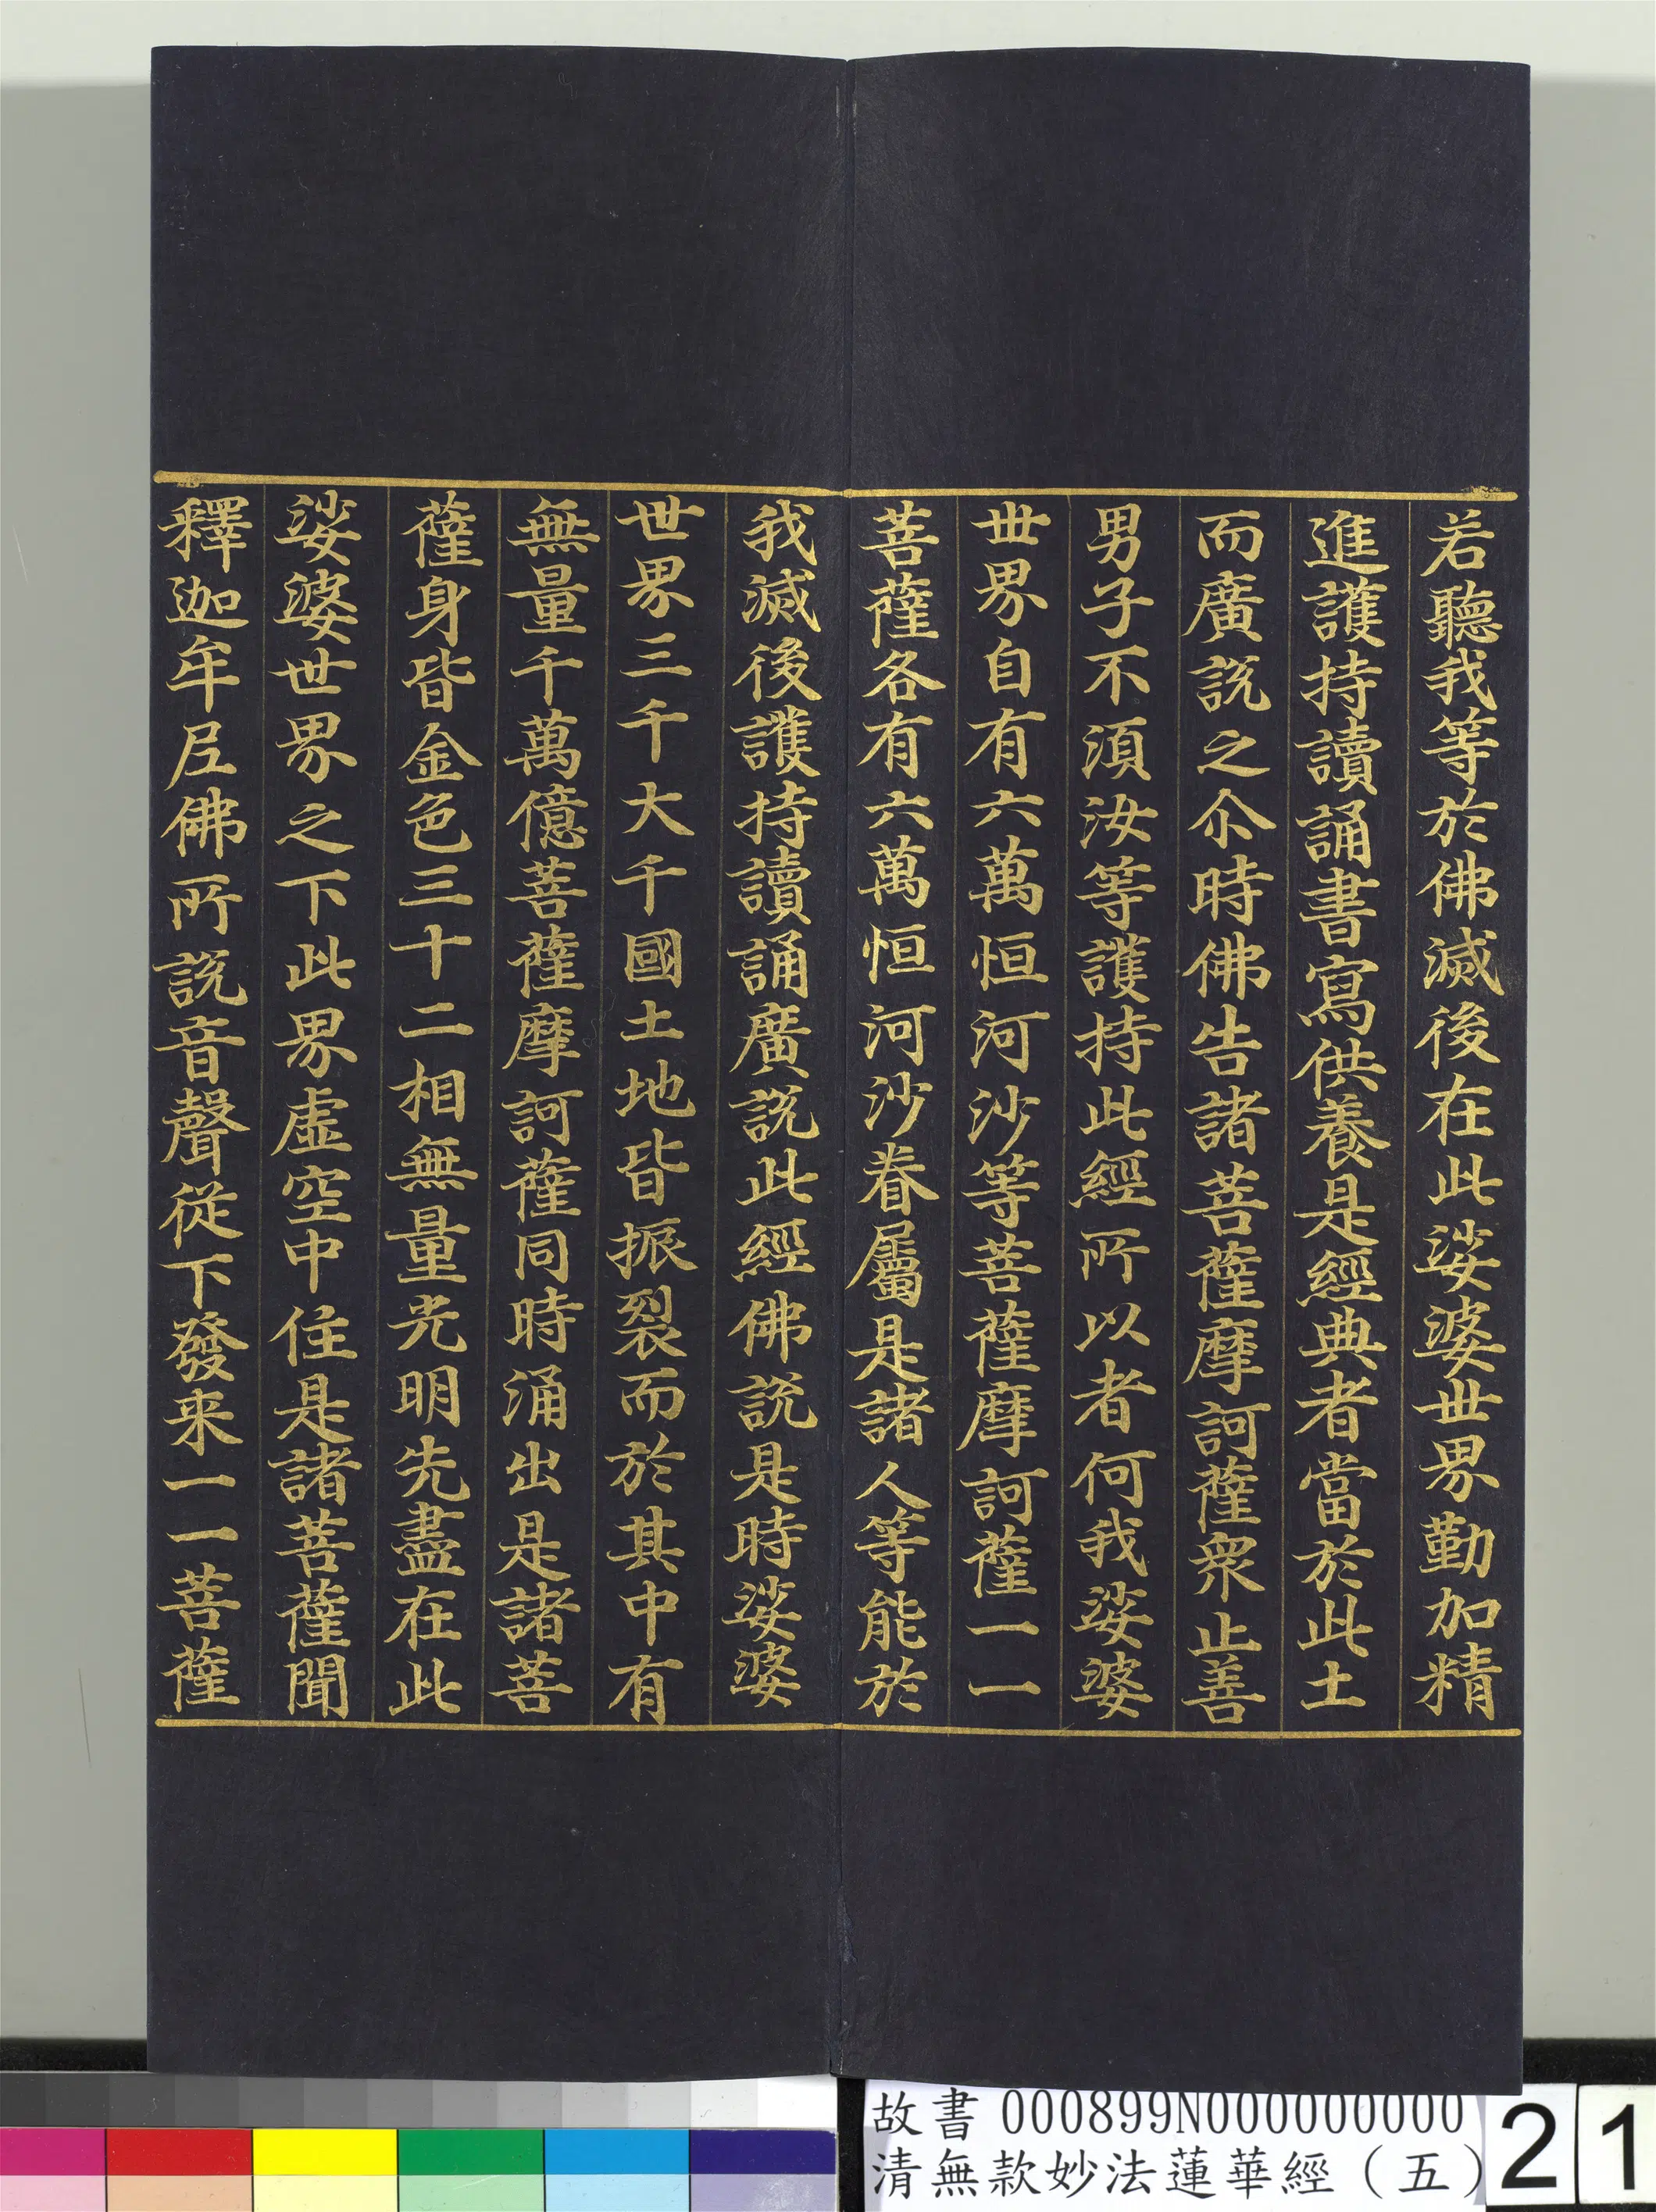 若聽我等於佛滅後在此娑婆丗界勤加精
進護持讀誦書寫供養是經典者當於此土
而廣說之尒時佛告諸菩薩摩訶薩衆止善
男子不湏汝等護持此經所以者何我娑婆
丗界自有六萬恒河沙等菩薩摩訶薩一一
菩薩各有六萬恒河沙眷屬是諸人等能於
我滅後護持讀誦廣說此經佛說是時娑婆
世界三千大千國土地皆振裂而於其中有
無量千萬億菩薩摩訶薩同時涌出是諸菩
薩身皆金色三十二相無量光明先盡在此
娑婆世界之下此界虛空中住是諸菩薩聞
釋迦牟尼佛所說音聲從下發来一一菩薩
故書 000899N000000000
清無款妙法蓮華經（五）
21